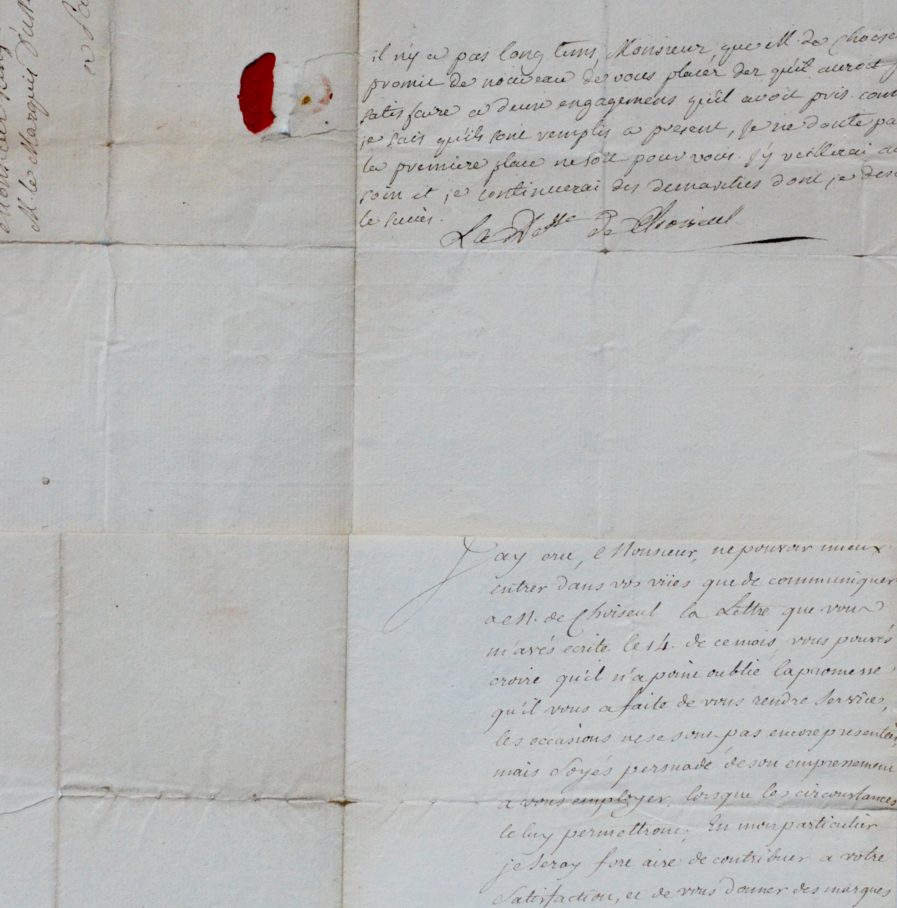 Monsieur
M. le Marquis d'
a
il n'y a pas long tems, Monsieur, que M. de Choise
promit de nouveau de vous placer des qu'il auroit
satisfaire a deux engagemens qu'il avoit pris. com
je sais qu'ils sont remplis a present, je ne doute pa
la premiere place ne soit pour vous. j'y veillerai a
soin et je continuerai des demarches dont je des
le succès.
La D.sse de Choiseul
J'ay cru, Monsieur, ne pouvoir mieux
entrer dans vos vües que de communiquer
a M. de Choiseul la Lettre que vous
m'avés écrite le 14. de ce mois, vous pouvés
croire qu'il n'a point oublié la promesse
qu'il vous a faite de vous rendre service,
les occasions ne se sont pas encore presentées,
mais soyés persuadé de son empressement
a vous employer, lorsque les circonstances
le luy permettront. En mon particulier
je seray fort aise de contribuer a votre
satisfaction, et de vous donner des marques